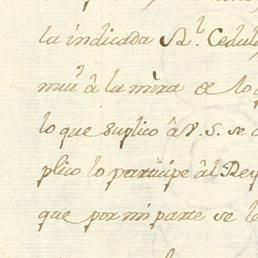 la indicada Rˡ. Cedula
muy â la mira de lo q
lo que suplico â V. S. se
plico lo participe âl Rey
que por mi parte se l